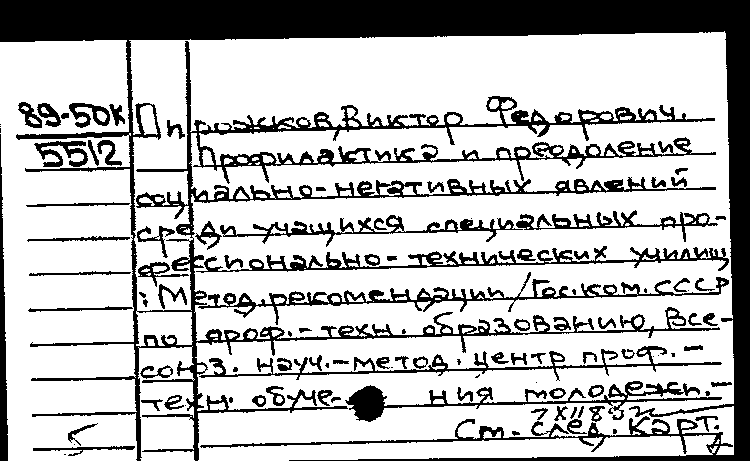 89-50к Пирожков, Виктор Федорович.
5512 Профилактика и преодоление
социально-негативных явлений
среди учащихся специальных про-
фессионально-технических училищ
: Метод. рекомендации / Гос. ком. СССР
по проф.-техн. образованию, Все-
союз. науч.-метод. центр проф.-
техн. обучения молодежи.-
См. след. карт.